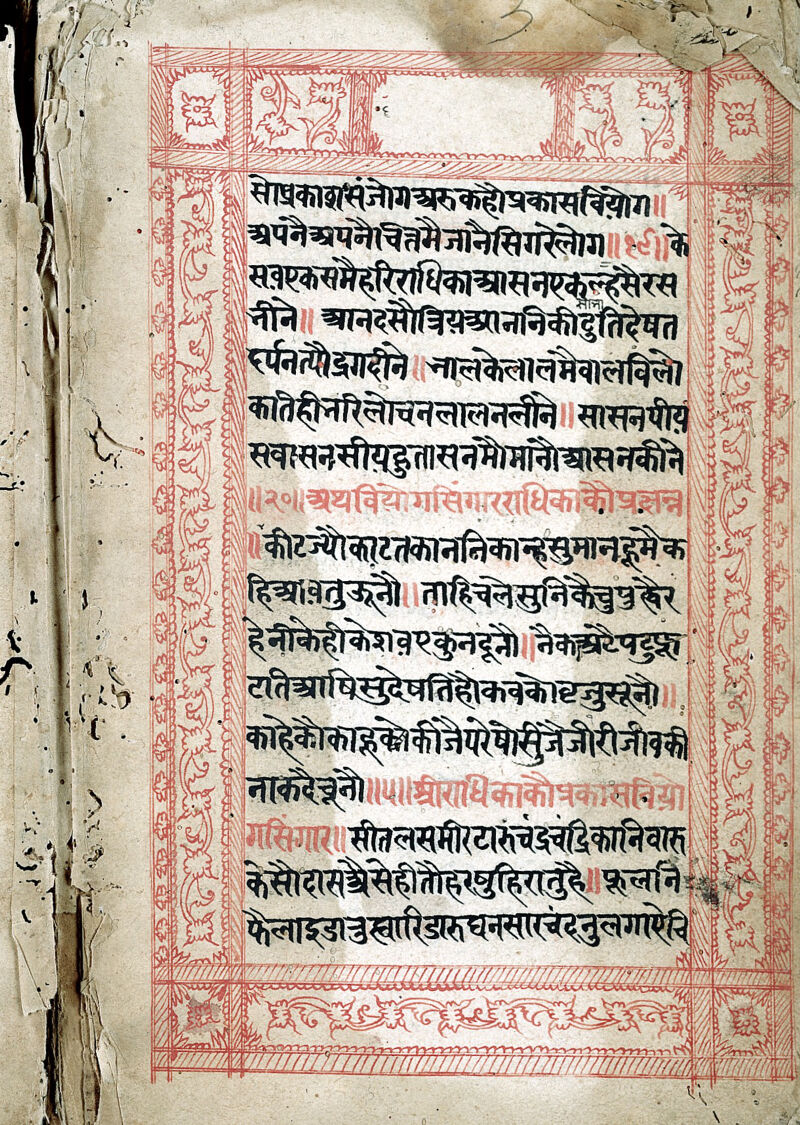 ६
सोप्रकाशसंजोगअरुकहौप्रकासवियोग॥
अपनैअपनैचितमैजानैसिगरेलोग॥१९॥के
सवएकसमैहरिराधिकाआसनएकलहैसैरस
भीने॥आनदसौत्रियआननिकीदुतिदेषत
दर्पनत्यौद्रगदीने॥भालकेलालमैवालविलो
कतिहीभरिलोचनलालनलीने॥सासनपीय
सवासनसीयहुतासनमौमानौआसनकीने
॥२०॥अथवियोगसिंगारराधिकाकौप्रछन्न
॥कीटज्यौकाटतकाननिकान्हसुमानहूमैक
हिआवतुऊनौ॥ताहिचलैसुनिकैचुपुह्वैर
हेनीकेहीकेशवएकुनदूनौ॥नैकअटैपटुफू
टातिआषिसुदेषतिहौकवकोब्रजुसूनौ॥
काहेकौकाहूकोकीजैपरेषोसुजेजीरीजीवकी
नाकदैचूनौ॥५॥श्रीराधिकाकौप्रकासवियो
गसिंगार॥सीतलसमीरटारुचंद्रचंद्रिकानिवारु
केसौदासअैसेहीतौहरषुहिरातुहै॥फूलनि
फैलाइडारुझारिडारुघनसारचंदनुलगाऐचि